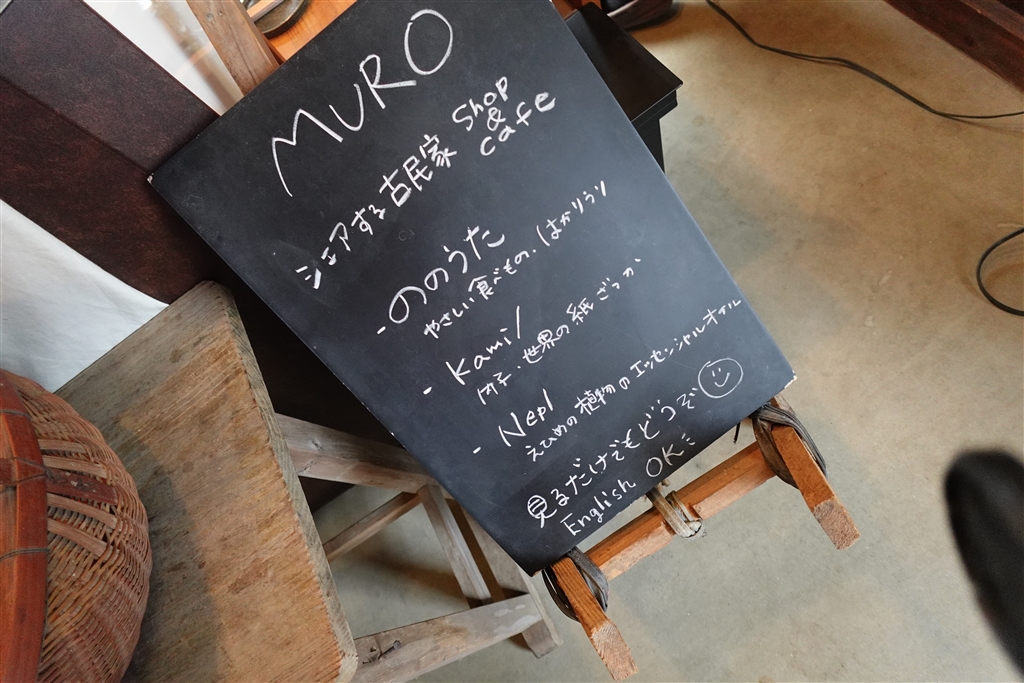 MURO
シェアする古民家 Shop & cafe
- ののうた
やさしい食べもの、はかりうり
- Kami/
内子・世界の紙ざっか
- Nepl
えひめの植物のエッセンシャルオイル
見るだけでもどうぞ
English OK